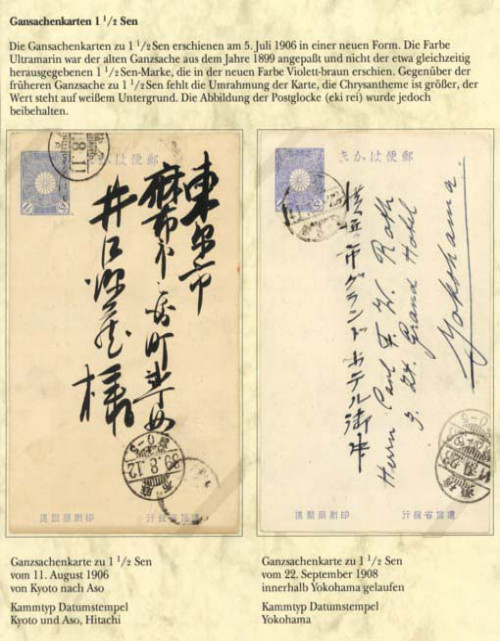 Gansachenkarten 1 1/2 Sen
Die Gansachenkarten zu 1 1/2 Sen erschienen am 5. Juli 1906 in einer neuen Form. Die Farbe
Ultramarin war der alten Ganzsache aus dem Jahre 1899 angepaßt und nicht der etwa gleichzeitig
herausgegebenen 1 1/2 Sen-Marke, die in der neuen Farbe Violett-braun erschien. Gegenüber der
früheren Ganzsache zu 1 1/2 Sen fehlt die Umrahmung der Karte, die Chrysantheme ist größer, der
Wert steht auf weißem Untergrund. Die Abbildung der Postglocke (eki rei) wurde jedoch
beibehalten.
きがは便郵
東京市
麻布
井口
様
39.8.12
漉抄局刷印
行發省信遞
Ganzsachenkarte zu 1 1/2 Sen
vom 11. August 1906
von Kyoto nach Aso
Kammtyp Datumstempel
Kyoto und Aso, Hitachi
きがは便郵
Herrn Paul F. W. Roth
Grand Hotel
Yokohama.
横浜市グランドホテル御中
行發省信遞
Ganzsachenkarte zu 1 1/2 Sen
vom 22. September 1908
innerhalb Yokohama gelaufen
Kammtyp Datumstempel
Yokohama